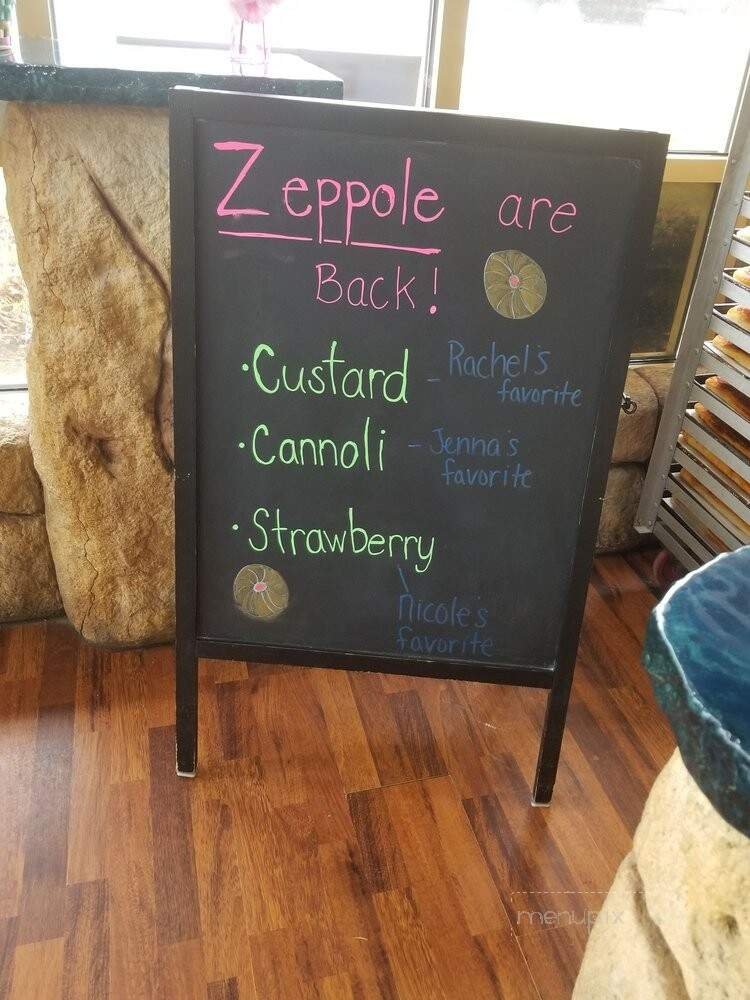 Zeppole are
Back!
•Custard - Rachel's
favorite
•Cannoli - Jenna's
favorite
•Strawberry
Nicole's
favorite
menupix